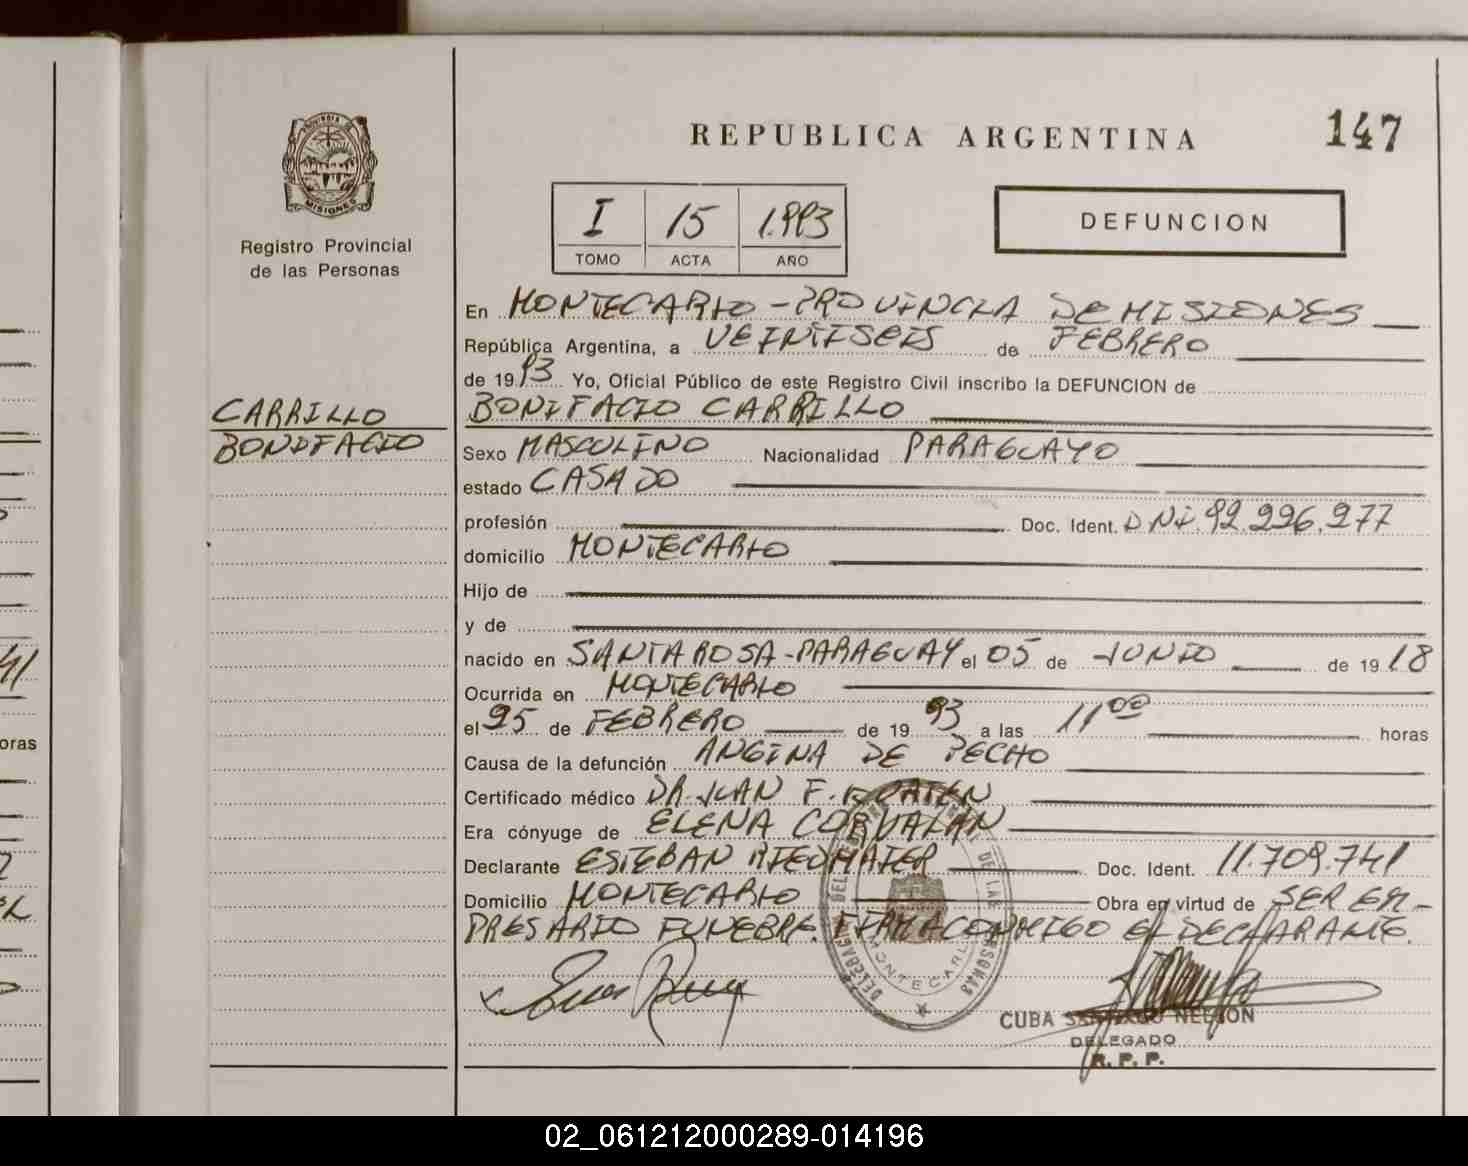 REPUBLICA ARGENTINA
147
PROVINCIA DE
MISIONES
Registro Provincial
de las Personas
I 15 1.993
TOMO ACTA AÑO
DEFUNCION
En MONTECARLO - PROVINCIA DE MISIONES
República Argentina, a VEINTISEIS de FEBRERO
de 1993 Yo, Oficial Público de este Registro Civil inscribo la DEFUNCION de
CARRILLO
BONIFACIO
BONIFACIO CARRILLO
Sexo MASCULINO Nacionalidad PARAGUAYO
estado CASADO
profesión Doc. Ident. DNI. 92.226.277
domicilio MONTECARLO
Hijo de
y de
nacido en SANTA ROSA - PARAGUAY el 05 de JUNIO de 1918
Ocurrida en MONTECARLO
el 25 de FEBRERO de 1993 a las 11 00 horas
Causa de la defunción ANGINA DE PECHO
Certificado médico DR. JUAN F.
Era cónyuge de ELENA CORVALAN
Declarante ESTEBAN RIEDMAIER Doc. Ident. 11.709.741
Domicilio MONTECARLO Obra en virtud de SER EM-
PRESARIO FUNEBRE. FIRMA CONMIGO EL DECLARANTE.
MONTECARLO
CUBA SANTIAGO NELSON
DELEGADO
R. P. P.
oras
02_061212000289-014196